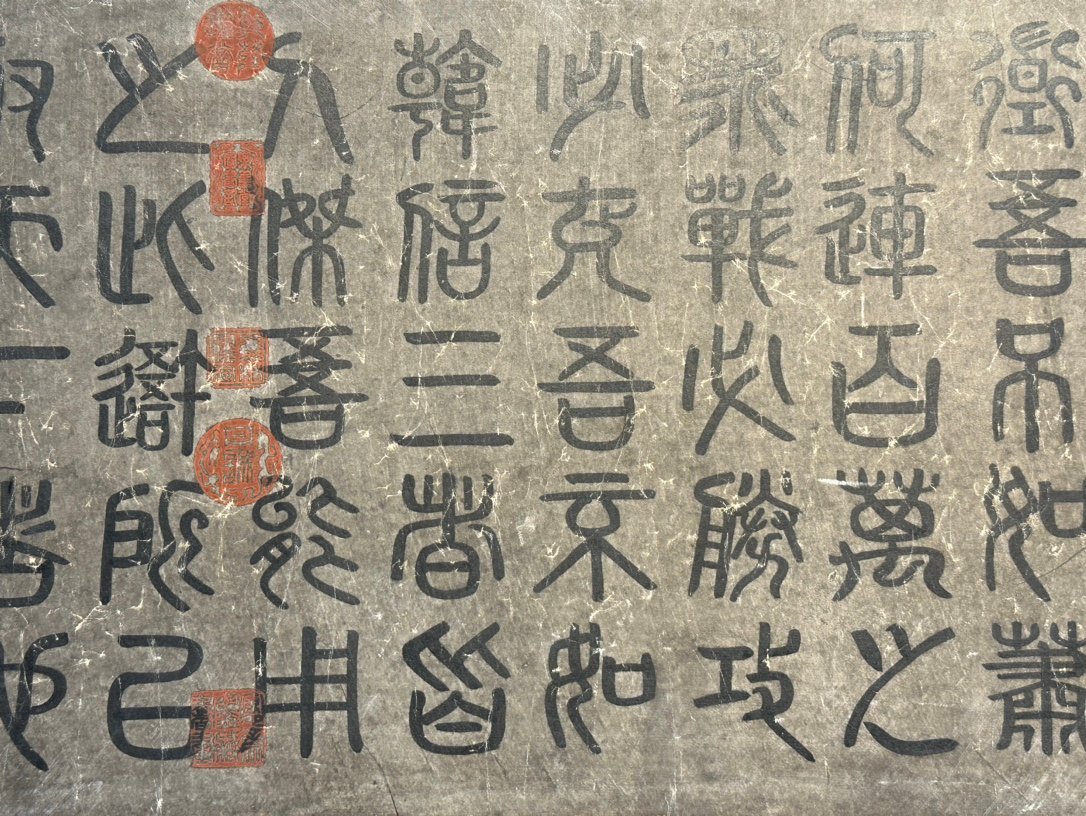 道吾不如蕭
何連百萬之
眾戰必勝攻
必克吾不如
韓信三者皆
人傑吾能用
之此吾所以
取天下者也